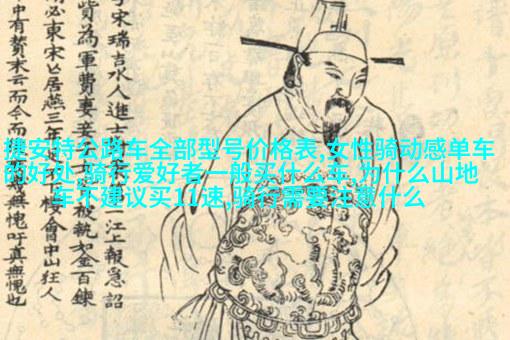 捷安特公路车全部型号价格表,女性骑动感单车
的好处,骑行爱好者一般买什么车,为什么山地
车不建议买11速,骑行需要注意什么
宋瑞吉水人進士 江上報急詔
貲為軍費妻妾 被執如金百鍊
必東宋亡居燕三年 樓會中山狂人
中有贊末云而今而 無愧吁真無愧也